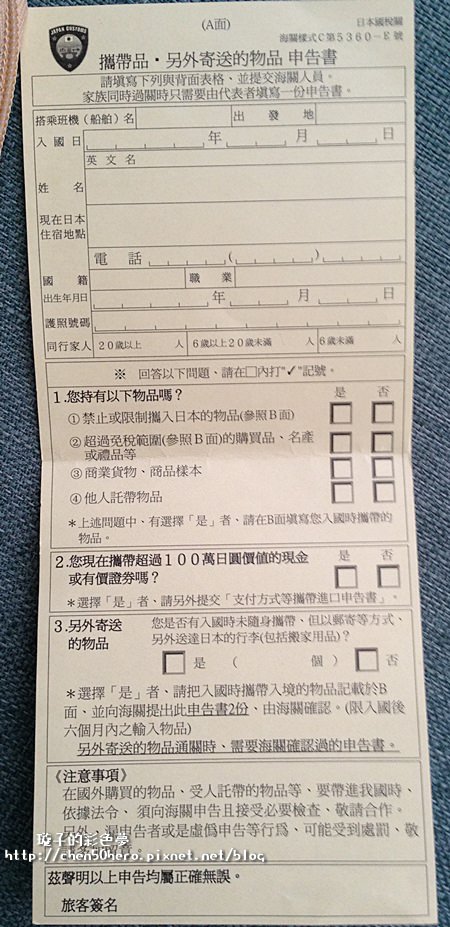 JAPAN CUSTOMS
(A面)
日本國稅關
海關樣式C第5360-E號
攜帶品・另外寄送的物品 申告書
請填寫下列與背面表格、並提交海關人員。
家族同時過關時只需要由代表者填寫一份申告書。
搭乘班機(船舶)名 出發地
入國日 年 月 日
英文名
姓名
現在日本
住宿地點
電話 ( )
國籍 職業
出生年月日 年 月 日
護照號碼
同行家人 20歲以上 人 6歲以上20歲未滿 人 6歲未滿 人
※ 回答以下問題、請在□內打"✓"記號。
1.您持有以下物品嗎? 是 否
①禁止或限制攜入日本的物品(參照B面)
②超過免稅範圍(參照B面)的購買品、名產
或禮品等
③商業貨物、商品樣本
④他人託帶物品
*上述問題中、有選擇「是」者、請在B面填寫您入國時攜帶的
物品。
2.您現在攜帶超過100萬日圓價值的現金 是 否
或有價證券嗎?
*選擇「是」者、請另外提交「支付方式等攜帶進口申告書」。
3.另外寄送 您是否有入國時未隨身攜帶、但以郵寄等方式、
的物品 另外送達日本的行李(包括搬家用品)?
是 ( 個) 否
*選擇「是」者、請把入國時攜帶入境的物品記載於B
面、並向海關提出此申告書2份、由海關確認。(限入國後
六個月內之輸入物品)
另外寄送的物品通關時、需要海關確認過的申告書。
《注意事項》
在國外購買的物品、受人託帶的物品等、要帶進我國時、
依據法令、須向海關申告且接受必要檢查、敬請合作。
另外、漏申告者或是虛偽申告等行為、可能受到處罰、敬
請多加留意。
璇子的彩色夢
http://chen50hero.pixnet.net/blog
茲聲明以上申告均屬正確無誤。
旅客簽名